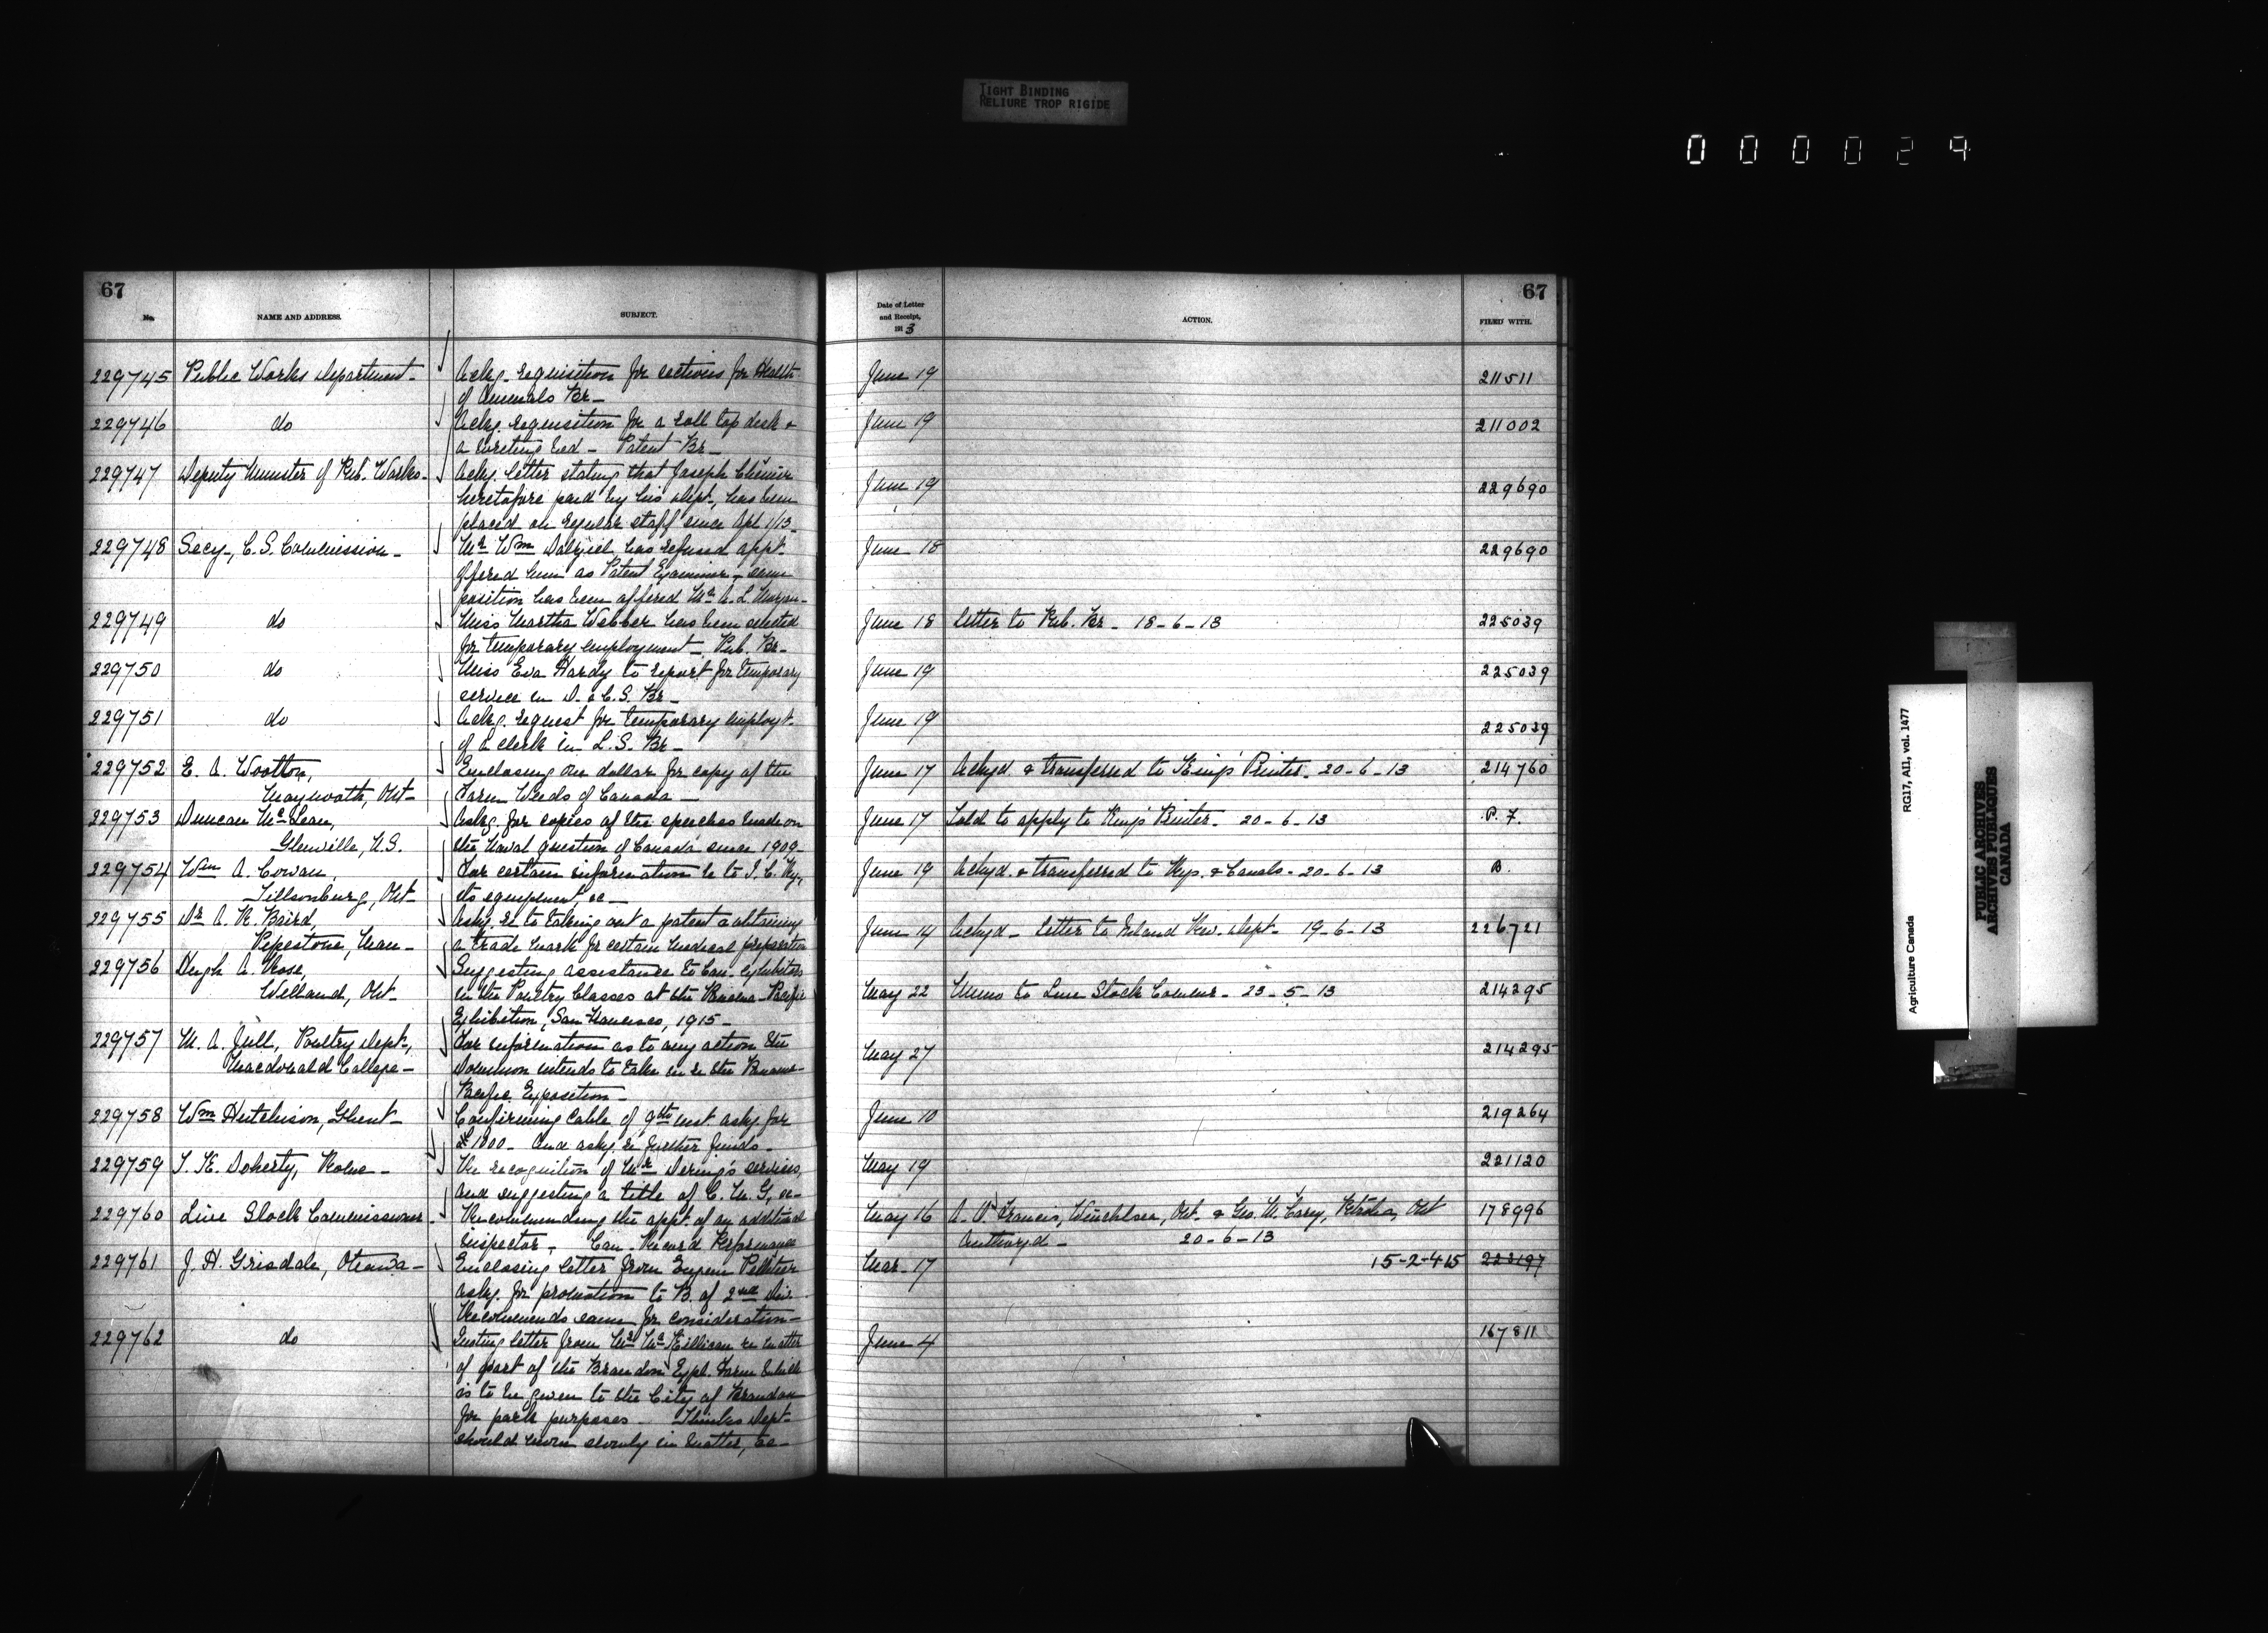 TIGHT BINDING
RELIURE TROP RIGIDE
000029
67
No.
NAME AND ADDRESS.
SUBJECT.
Date of Letter
and Receipt,
1913
ACTION.
67
FILED WITH.
229745 Public Works Department- Ackg. requisition for sections for Health June 19 211511
of Animals Br-
229746 do Ackg. requisition for a roll top desk & June 19 211002
a writing bed - Patent Br-
229747 Deputy Minister of Pub. Works- Ackg. letter stating that Joseph June 19 229690
heretofore paid by his Dept, has been
placed on regular staff since Apl 1/13-
229748 Secy, C.S. Commission- Mr Wm Dalziel has refused appt. June 18 229690
offered him as Patent Examiner - same
position has been offered Mr A. L. Morgan-
229749 do Miss Martha Webber has been selected June 18 Letter to Pub. Br- 18-6-13 225039
for temporary employment - Pub. Br-
229750 do Miss Eva Hardy to report for temporary June 19 225039
service in D. & C.S. Br-
229751 do Ackg. request for temporary employt- June 19 225039
of a clerk in L.S. Br-
229752 E. A. Wootton, Enclosing one dollar for copy of the June 17 Ackgd. & transferred to King's Printer- 20-6-13 214760
Maynooth, Ont- Farm Weeds of Canada-
229753 Duncan McLean, Askg. for copies of the speeches made on June 17 Told to apply to King's Printer- 20-6-13 P. F.
Glenville, N.S. the Naval question of Canada since 1909-
229754 Wm A. Cowan, For certain information re to I. C. Ry, June 19 Ackgd. & transferred to Rys. & Canals- 20-6-13 B.
Tillsonburg, Ont- its equipment, &c-
229755 Dr A. R. Baird, Askg. re to taking out a patent & obtaining June 14 Ackgd- Letter to Inland Rev. Dept- 19-6-13 226721
Pipestone, Man- a trade mark for certain medical preparation
229756 Hugh A. Rose, Suggesting assistance to Can. exhibitors
Welland, Ont- in the Poultry Classes at the Panama-Pacific May 22 Memo to Live Stock Commr- 23-5-13 214295
Exhibition, San Francisco, 1915-
229757 M. A. Jull, Poultry Dept, For information as to any action the May 27 214295
Macdonald College- Dominion intends to take in re the Panama-
Pacific Exposition-
229758 Wm Hutchison, Ghent- Confirming cable of 9th inst askg for June 10 219264
£1800- And askg. re further funds-
229759 T. K. Doherty, Rome- Re recognition of Mr Dering's services, May 19 221120
and suggesting a title of C. M. G, &c-
229760 Live Stock Commissioner- Recommending the appt. of an additional May 16 A. V. Francis, Winchelsea, Ont. & Geo. W. Carey, Petrolia, Ont 178996
inspector- Can. Record Performance Authorzd- 20-6-13
229761 J. H. Grisdale, Ottawa- Enclosing letter from Eugene Pelletier Mar- 17 15-2-415 223197
askg. for promotion to B. of 2nd Div-
Recommends same for consideration-
229762 do Quoting letter from Mr McKillican re matter June 4 167811
of part of the Brandon Exptl. Farm which
is to be given to the City of Brandon
for park purposes- Thinks Dept-
should move slowly in matter, &c-
Agriculture Canada
RG17, AII, vol. 1477
PUBLIC ARCHIVES
ARCHIVES PUBLIQUES
CANADA